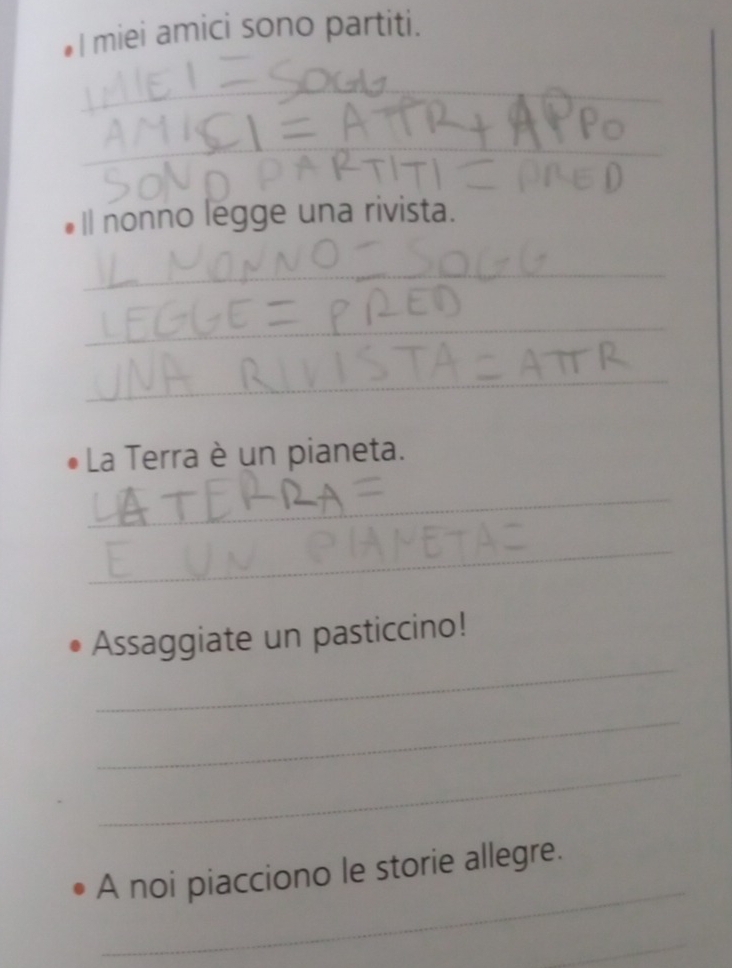 • I miei amici sono partiti.
I MIEI = SOGG
AMICI = ATTR + APPO
SONO PARTITI = PRED
• Il nonno legge una rivista.
IL NONNO = SOGG
LEGGE = PRED
UNA RIVISTA = ATTR
• La Terra è un pianeta.
LA TERRA =
E UN PIANETA =
• Assaggiate un pasticcino!
• A noi piacciono le storie allegre.